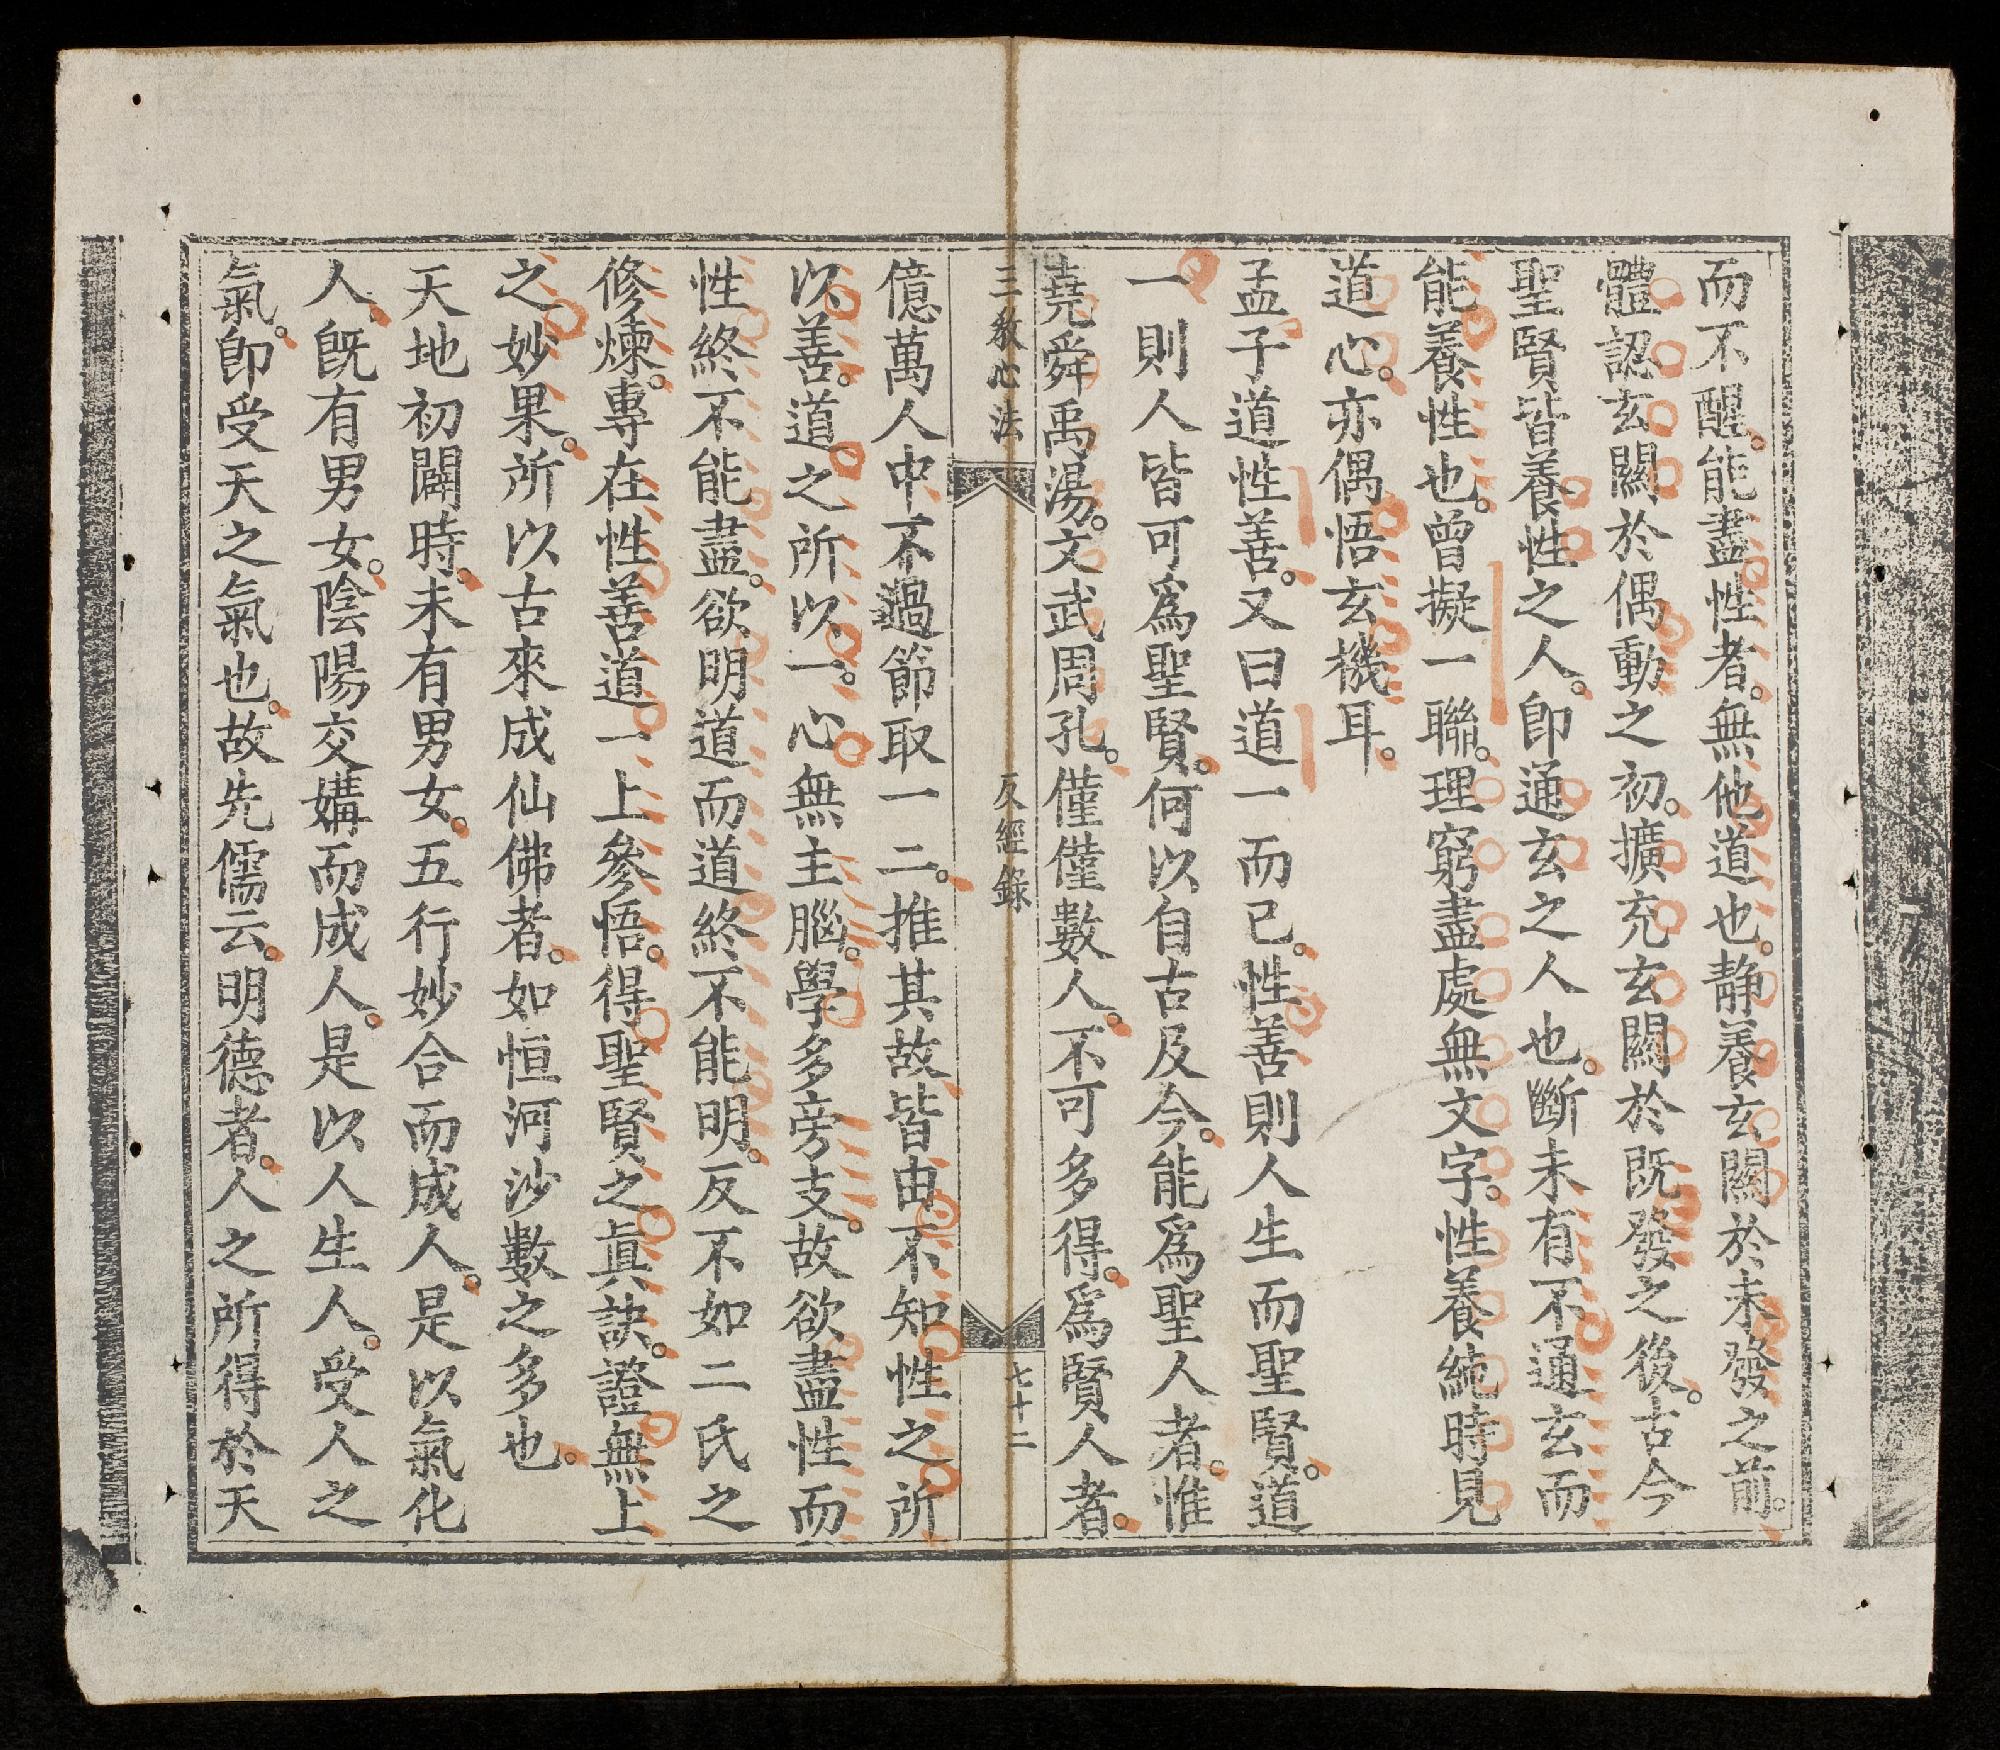 而不醒。能盡性者。無他道也。静養玄關於未發之前。
體認玄關於偶動之初。擴充玄關於既發之後。古今
聖賢皆養性之人。卽通玄之人也。斷未有不通玄而
能養性也。曾擬一聯。理窮盡處無文字。性養純時見
道心。亦偶悟玄機耳。
孟子道性善。又曰道一而已。性善則人生而聖賢。道
一則人皆可爲聖賢。何以自古及今。能爲聖人者。惟
堯舜禹湯。文武周孔。僅僅數人。不可多得。爲賢人者。
三教心法 反經錄 七十二
億萬人中不過節取一二。推其故皆由不知性之所
以善。道之所以一。心無主腦。學多旁支。故欲盡性而
性終不能盡。欲明道而道終不能明。反不如二氏之
修煉。專在性善道一上參悟。得聖賢之眞訣。證無上
之妙果。所以古來成仙佛者。如恒河沙數之多也。
天地初闢時。未有男女。五行妙合而成人。是以氣化
人、旣有男女。陰陽交媾而成人。是以人生人。受人之
氣。卽受天之氣也。故先儒云。明德者。人之所得於天